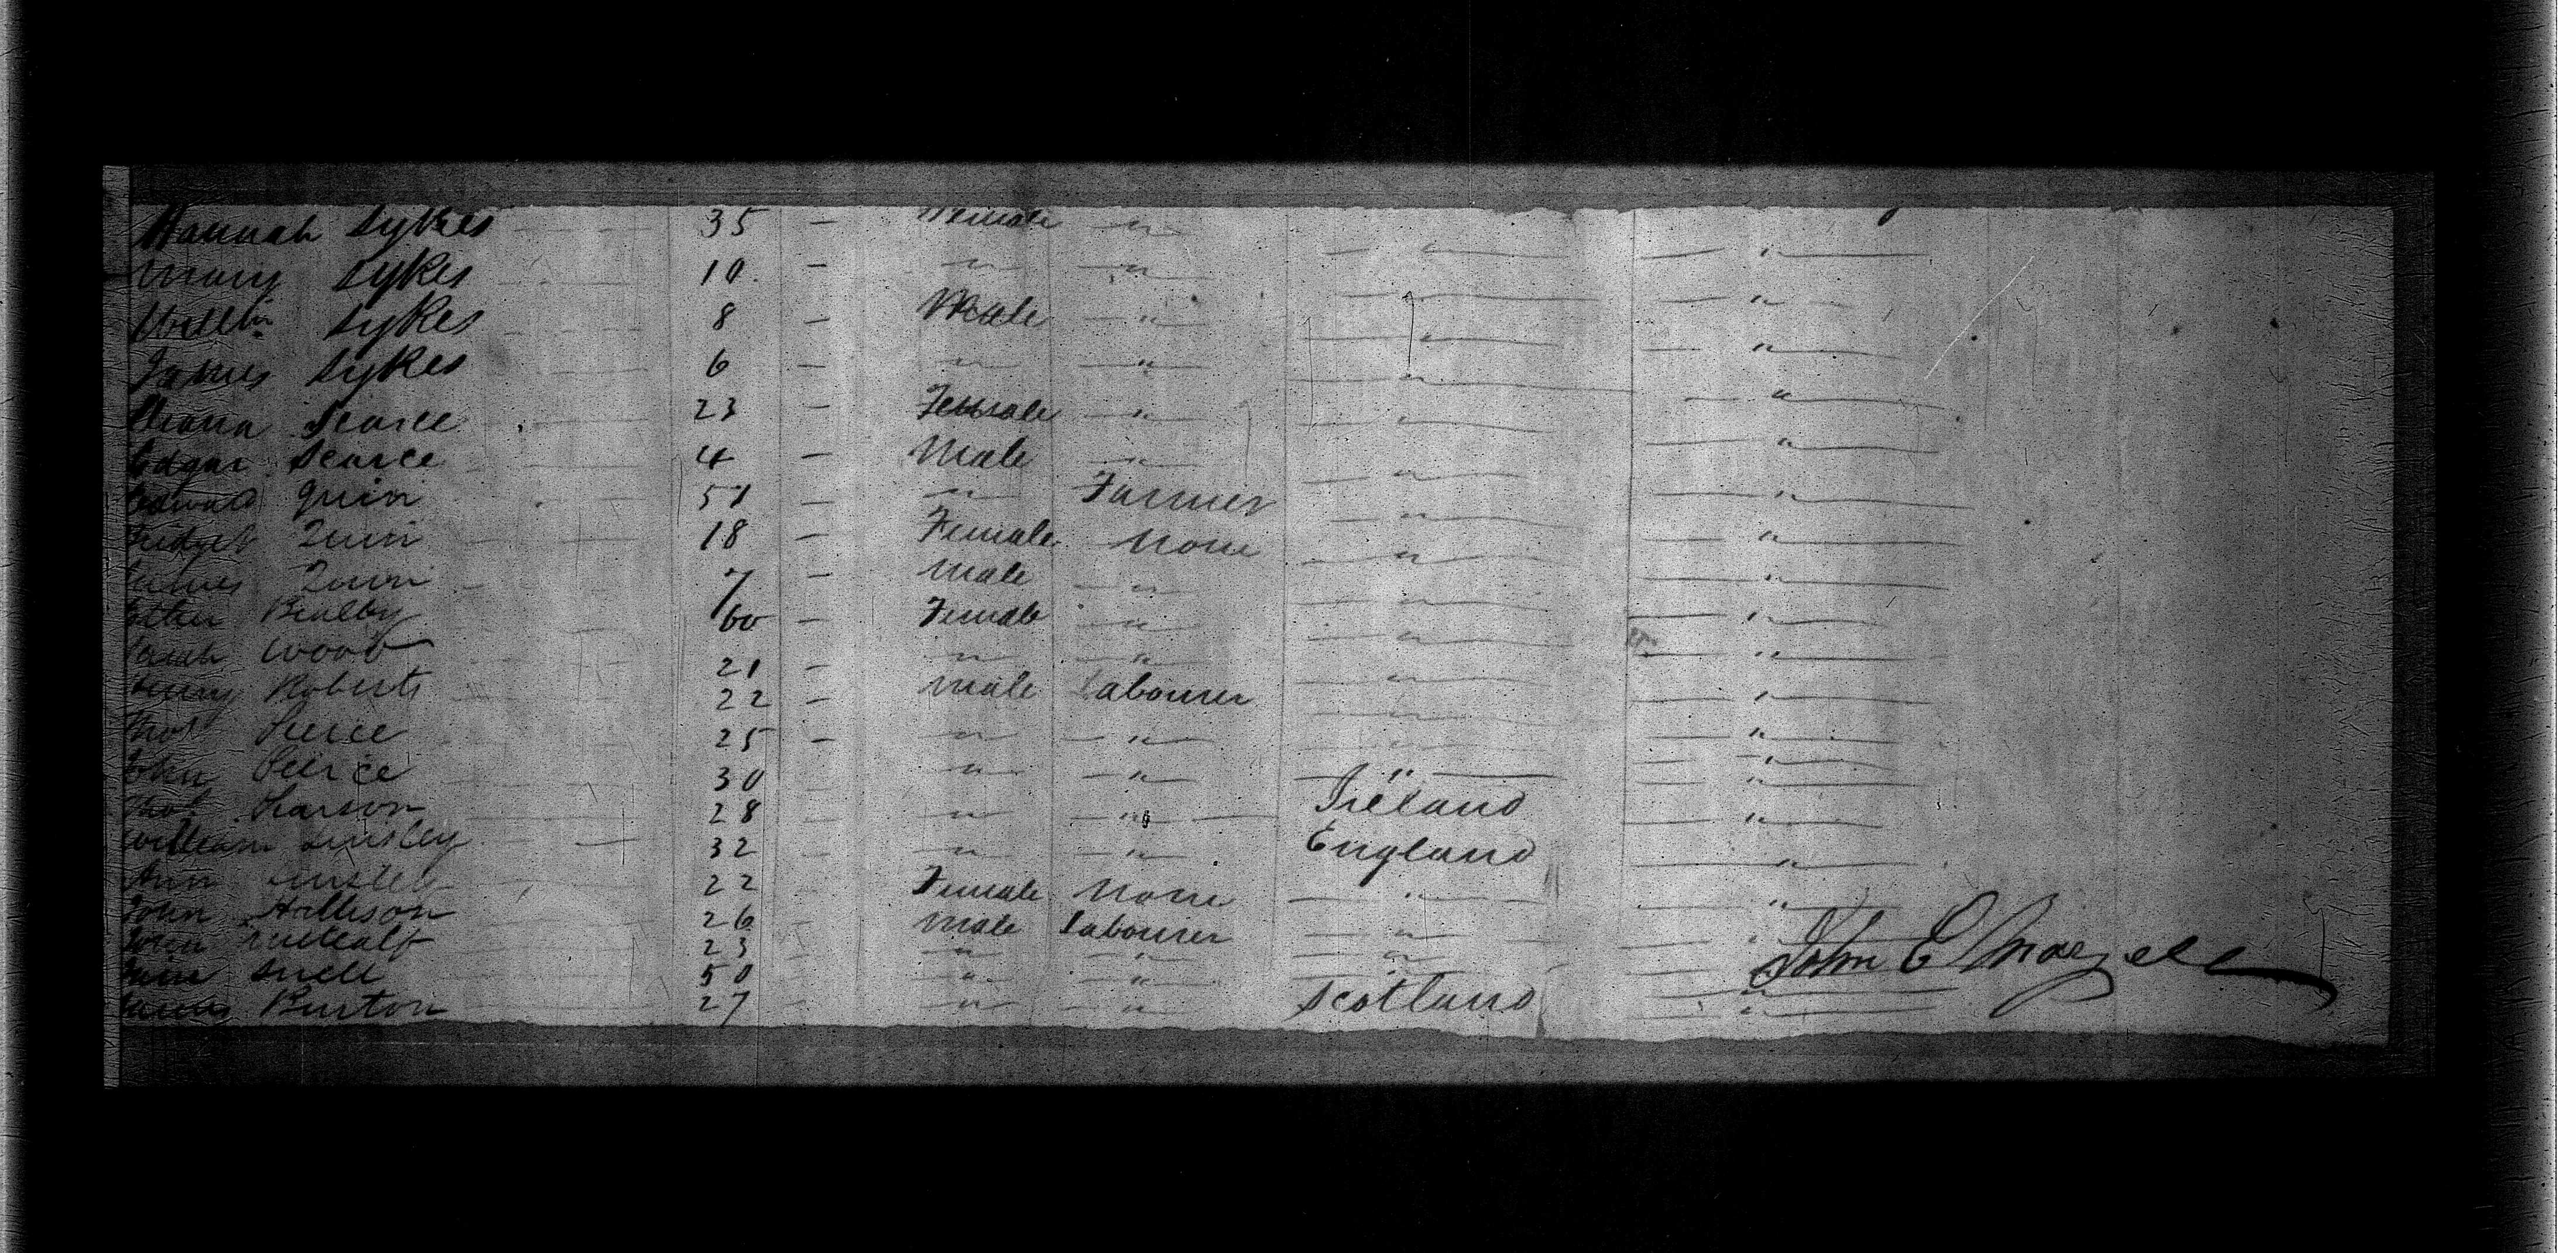 Hannah Sykes 35 – Female "
Mary Sykes 10 – " " " "
Willm Sykes 8 – Male " " "
James Sykes 6 – " " " "
Pearce 23 – Female " " "
Edgar Pearce 4 – Male " " "
Edward Quin 51 – " Farmer " "
Bridget Quin 18 – Female None " "
James Quin 7 – Male " " "
Esther 60 – Female " " "
Sarah Wood 21 – " " " "
Henry Roberts 22 – Male Labourer " "
Thos Peirce 25 – " " " "
John Peirce 30 " " " "
Thos Pearson 28 " " Ireland "
William Linsley 32 " " England "
Ann Linsley 22 Female None " "
John Hallison 26 Male Labourer " "
John Metcalf 23 " " " "
Snell 50 " " " "
James Burton 27 " " Scotland "
John E